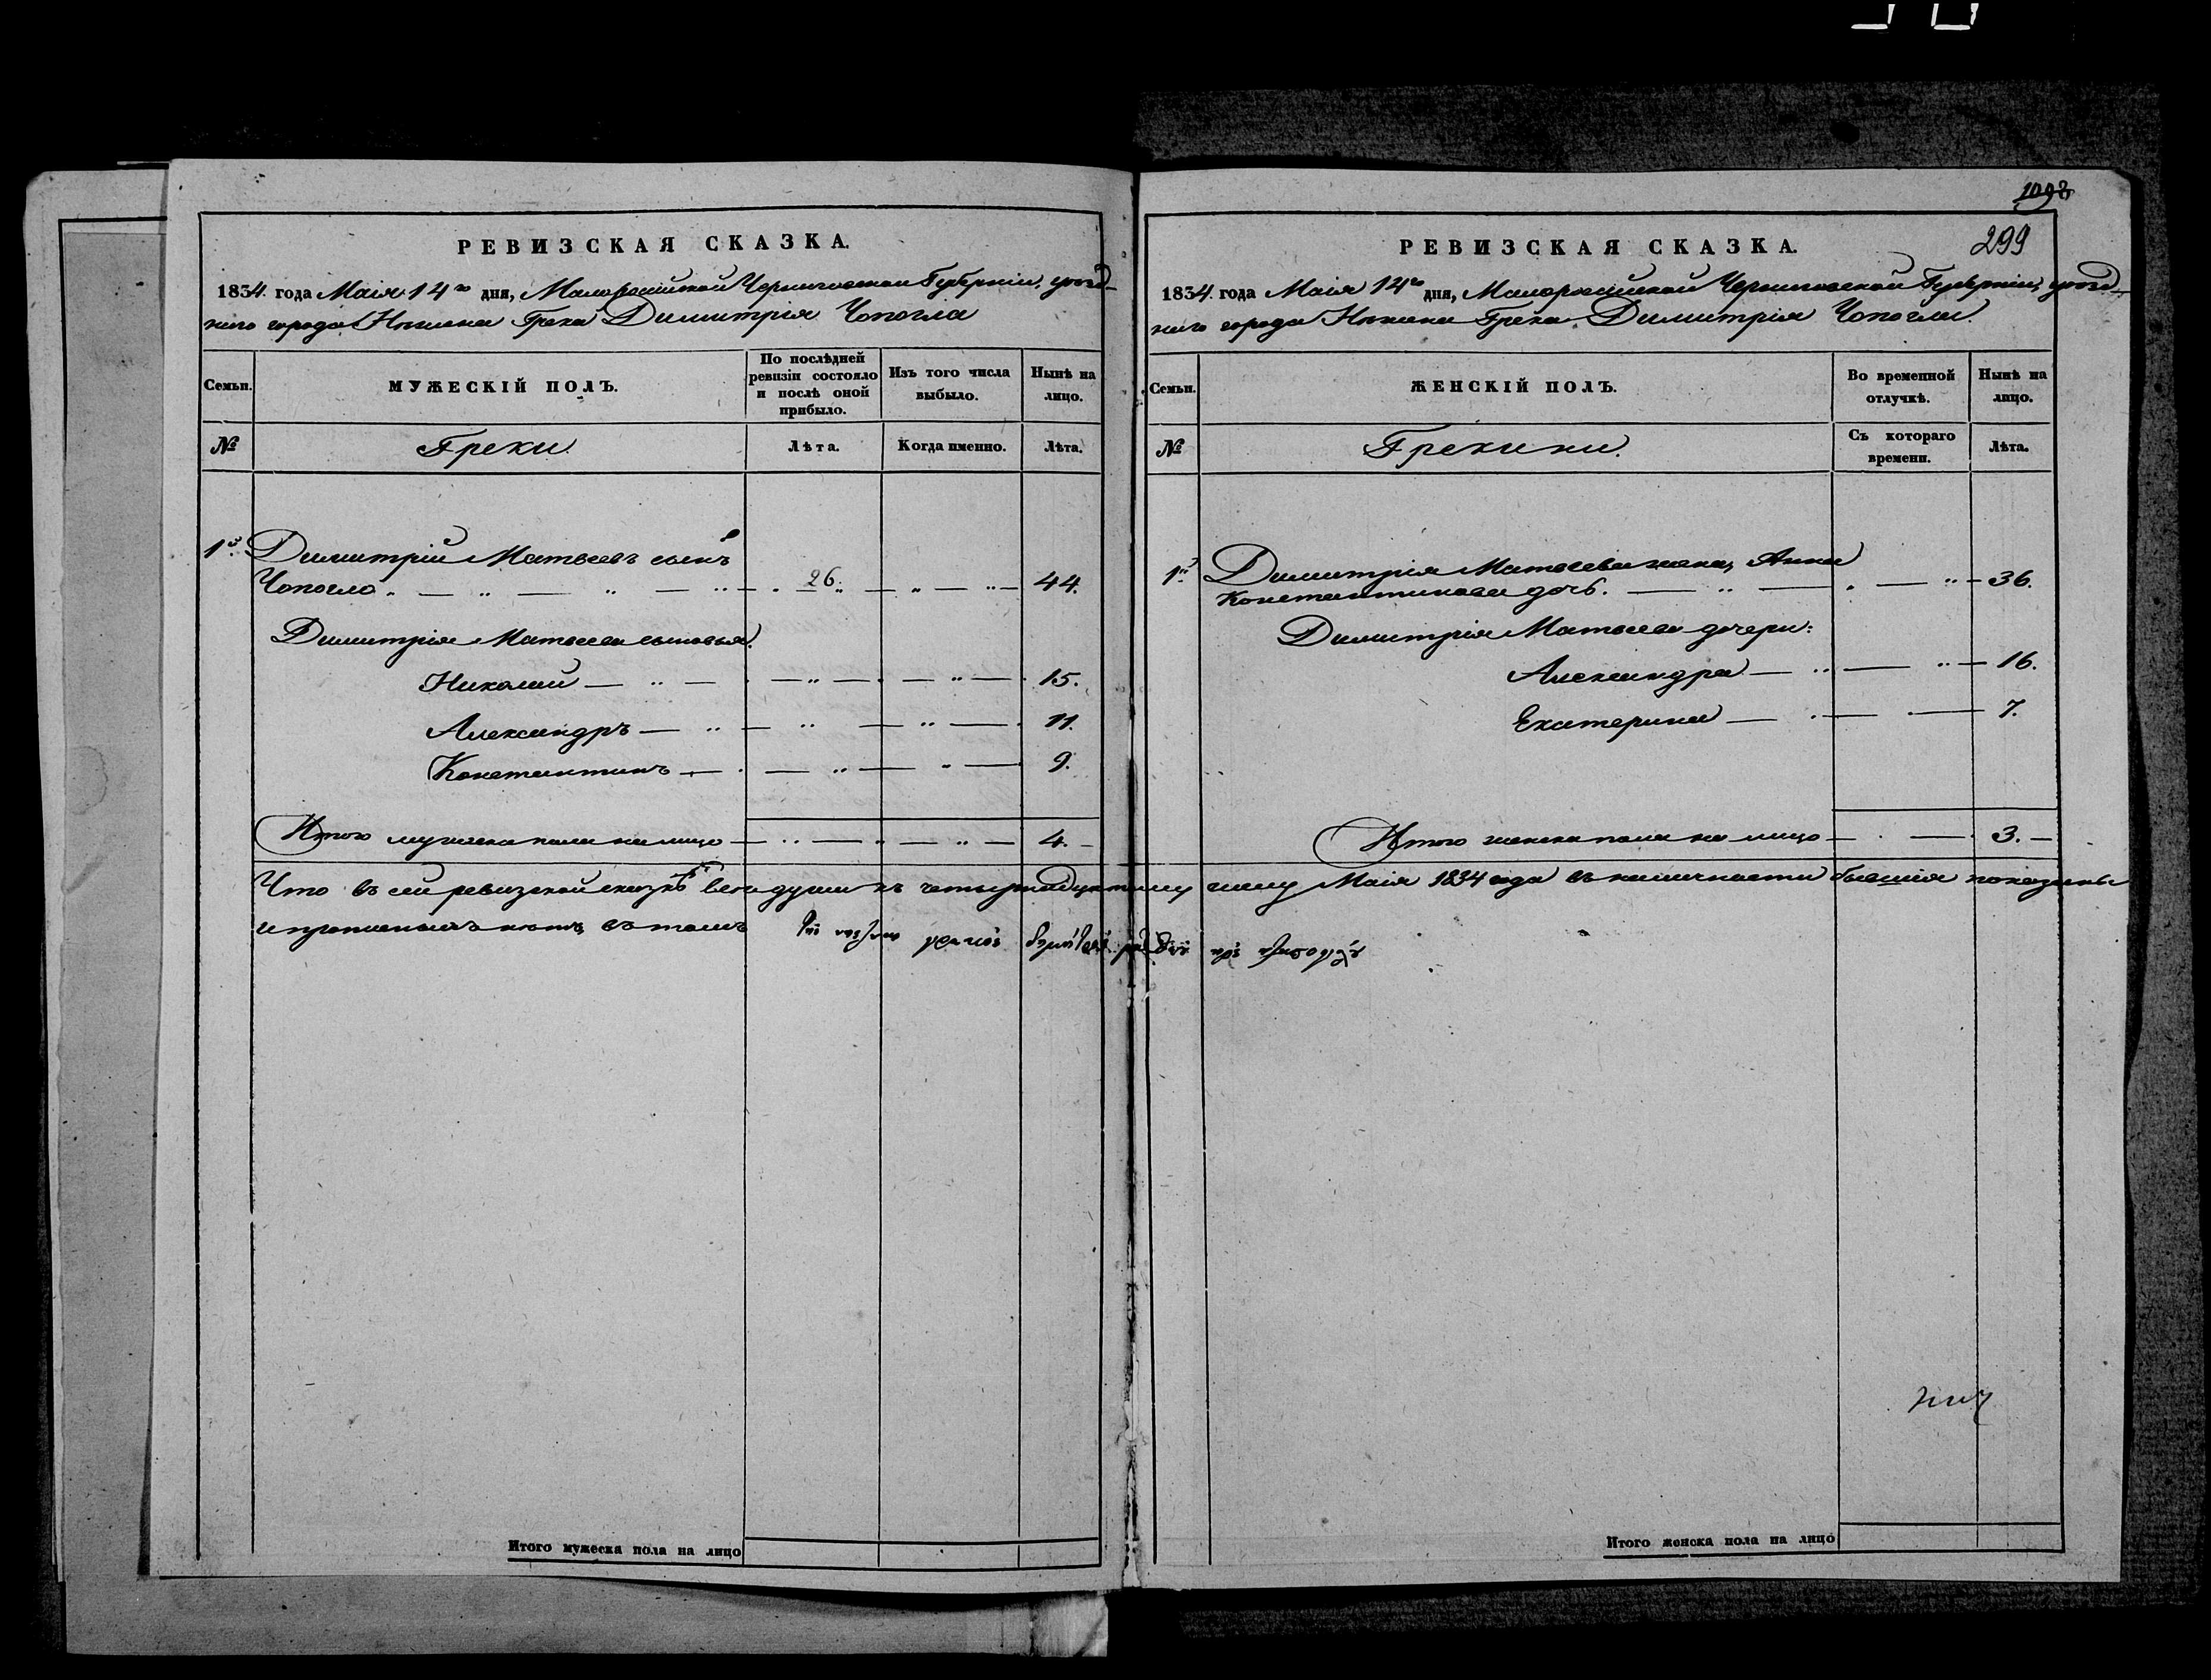 РЕВИЗСКАЯ СКАЗКА.
1834 года Маія 14го дня, Малоросийской Черниговской Губерніи, уезд-
наго города Нежина Грека Димитрія Чопогла
Семьи.
МУЖЕСКІЙ ПОЛЪ.
По послѣдней ревизіи состояло и послѣ оной прибыло.
Изъ того числа выбыло.
Нынѣ на лицо.
№
Греки.
Лѣта.
Когда именно.
Лѣта.
1й. Димитрій Матвеевъ сынъ
Чопогло 26. 44.
Димитрія Матвеева сыновья:
Николай 15.
Александръ 11.
Константинъ 9.
Итого мужеска пола на лицо 4.
Что въ сей ревизской сказкѣ все души къ четырнадцатому
и прописныхъ нетъ, въ томъ
Итого мужеска пола на лицо
1098
299
РЕВИЗСКАЯ СКАЗКА.
1834 года Маія 14го дня, Малоросийской Черниговской Губерніи, уезд-
наго города Нежина Грека Димитрія Чопогли.
Семьи.
ЖЕНСКІЙ ПОЛЪ.
Во временной отлучкѣ.
Нынѣ на лицо.
№
Грекини.
Съ котораго времени.
Лѣта.
1й. Димитрія Матвеева жена, Анна
Константинова дочь. 36.
Димитрія Матвеева дочери:
Александра 16.
Екатерина 7.
Итого женска пола на лицо 3.
числу Маія 1834 года въ наличности бывшія показаны
Итого женска пола на лицо